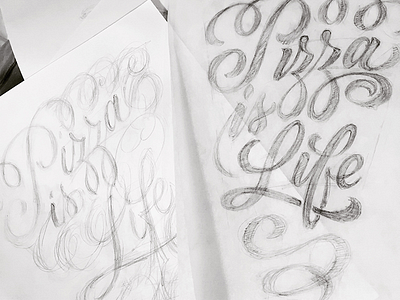 Pizza
is
Life
Pizza
is
Life